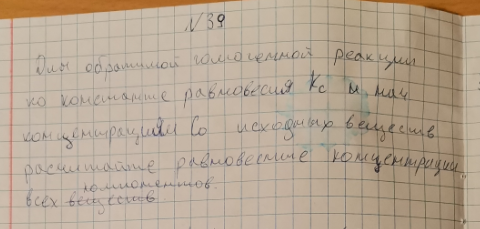 №39
Для обратимой гомогенной реакции
по константе равновесия Kc и нач
концентрациям Co исходных веществ
расчитайте равновесные концентрации
всех компонентов.
веществ.